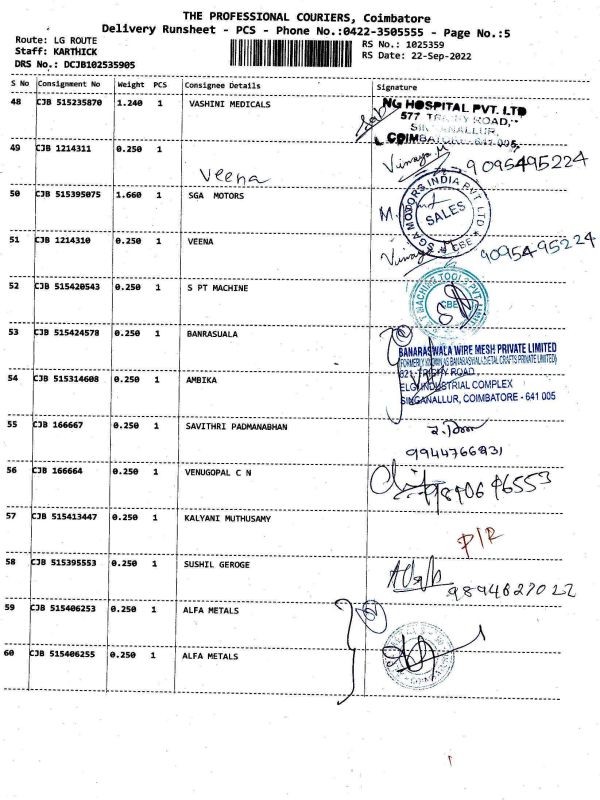 THE PROFESSIONAL COURIERS, Coimbatore
Delivery Runsheet - PCS - Phone No.:0422-3505555 - Page No.:5
Route: LG ROUTE
Staff: KARTHICK
DRS No.: DCJB102535905
RS No.: 1025359
RS Date: 22-Sep-2022
S No Consignment No Weight PCS Consignee Details Signature
48 CJB 515235870 1.240 1 VASHINI MEDICALS
NG HOSPITAL PVT. LTD
577 TRICHY ROAD,
SINGANALLUR,
COIMBATORE - 641 005.
49 CJB 1214311 0.250 1 Veena
Vinaya M 9095495224
50 CJB 515395075 1.660 1 SGA MOTORS
SGA MOTORS INDIA PVT LTD
SALES
CBE
51 CJB 1214310 0.250 1 VEENA
Vinaya M 9095495224
52 CJB 515420543 0.250 1 S PT MACHINE
MACHINE TOOLS PVT LTD
CBE
53 CJB 515424578 0.250 1 BANRASUALA
BANARASWALA WIRE MESH PRIVATE LIMITED
(FORMERLY KNOWN AS BANARASWALA METAL CRAFTS PRIVATE LIMITED)
621, TRICHY ROAD
ELGI INDUSTRIAL COMPLEX
SINGANALLUR, COIMBATORE - 641 005
54 CJB 515314608 0.250 1 AMBIKA
55 CJB 166667 0.250 1 SAVITHRI PADMANABHAN
9944766831
56 CJB 166664 0.250 1 VENUGOPAL C N
57 CJB 515413447 0.250 1 KALYANI MUTHUSAMY
P/R
58 CJB 515395553 0.250 1 SUSHIL GEROGE
59 CJB 515406253 0.250 1 ALFA METALS
60 CJB 515406255 0.250 1 ALFA METALS